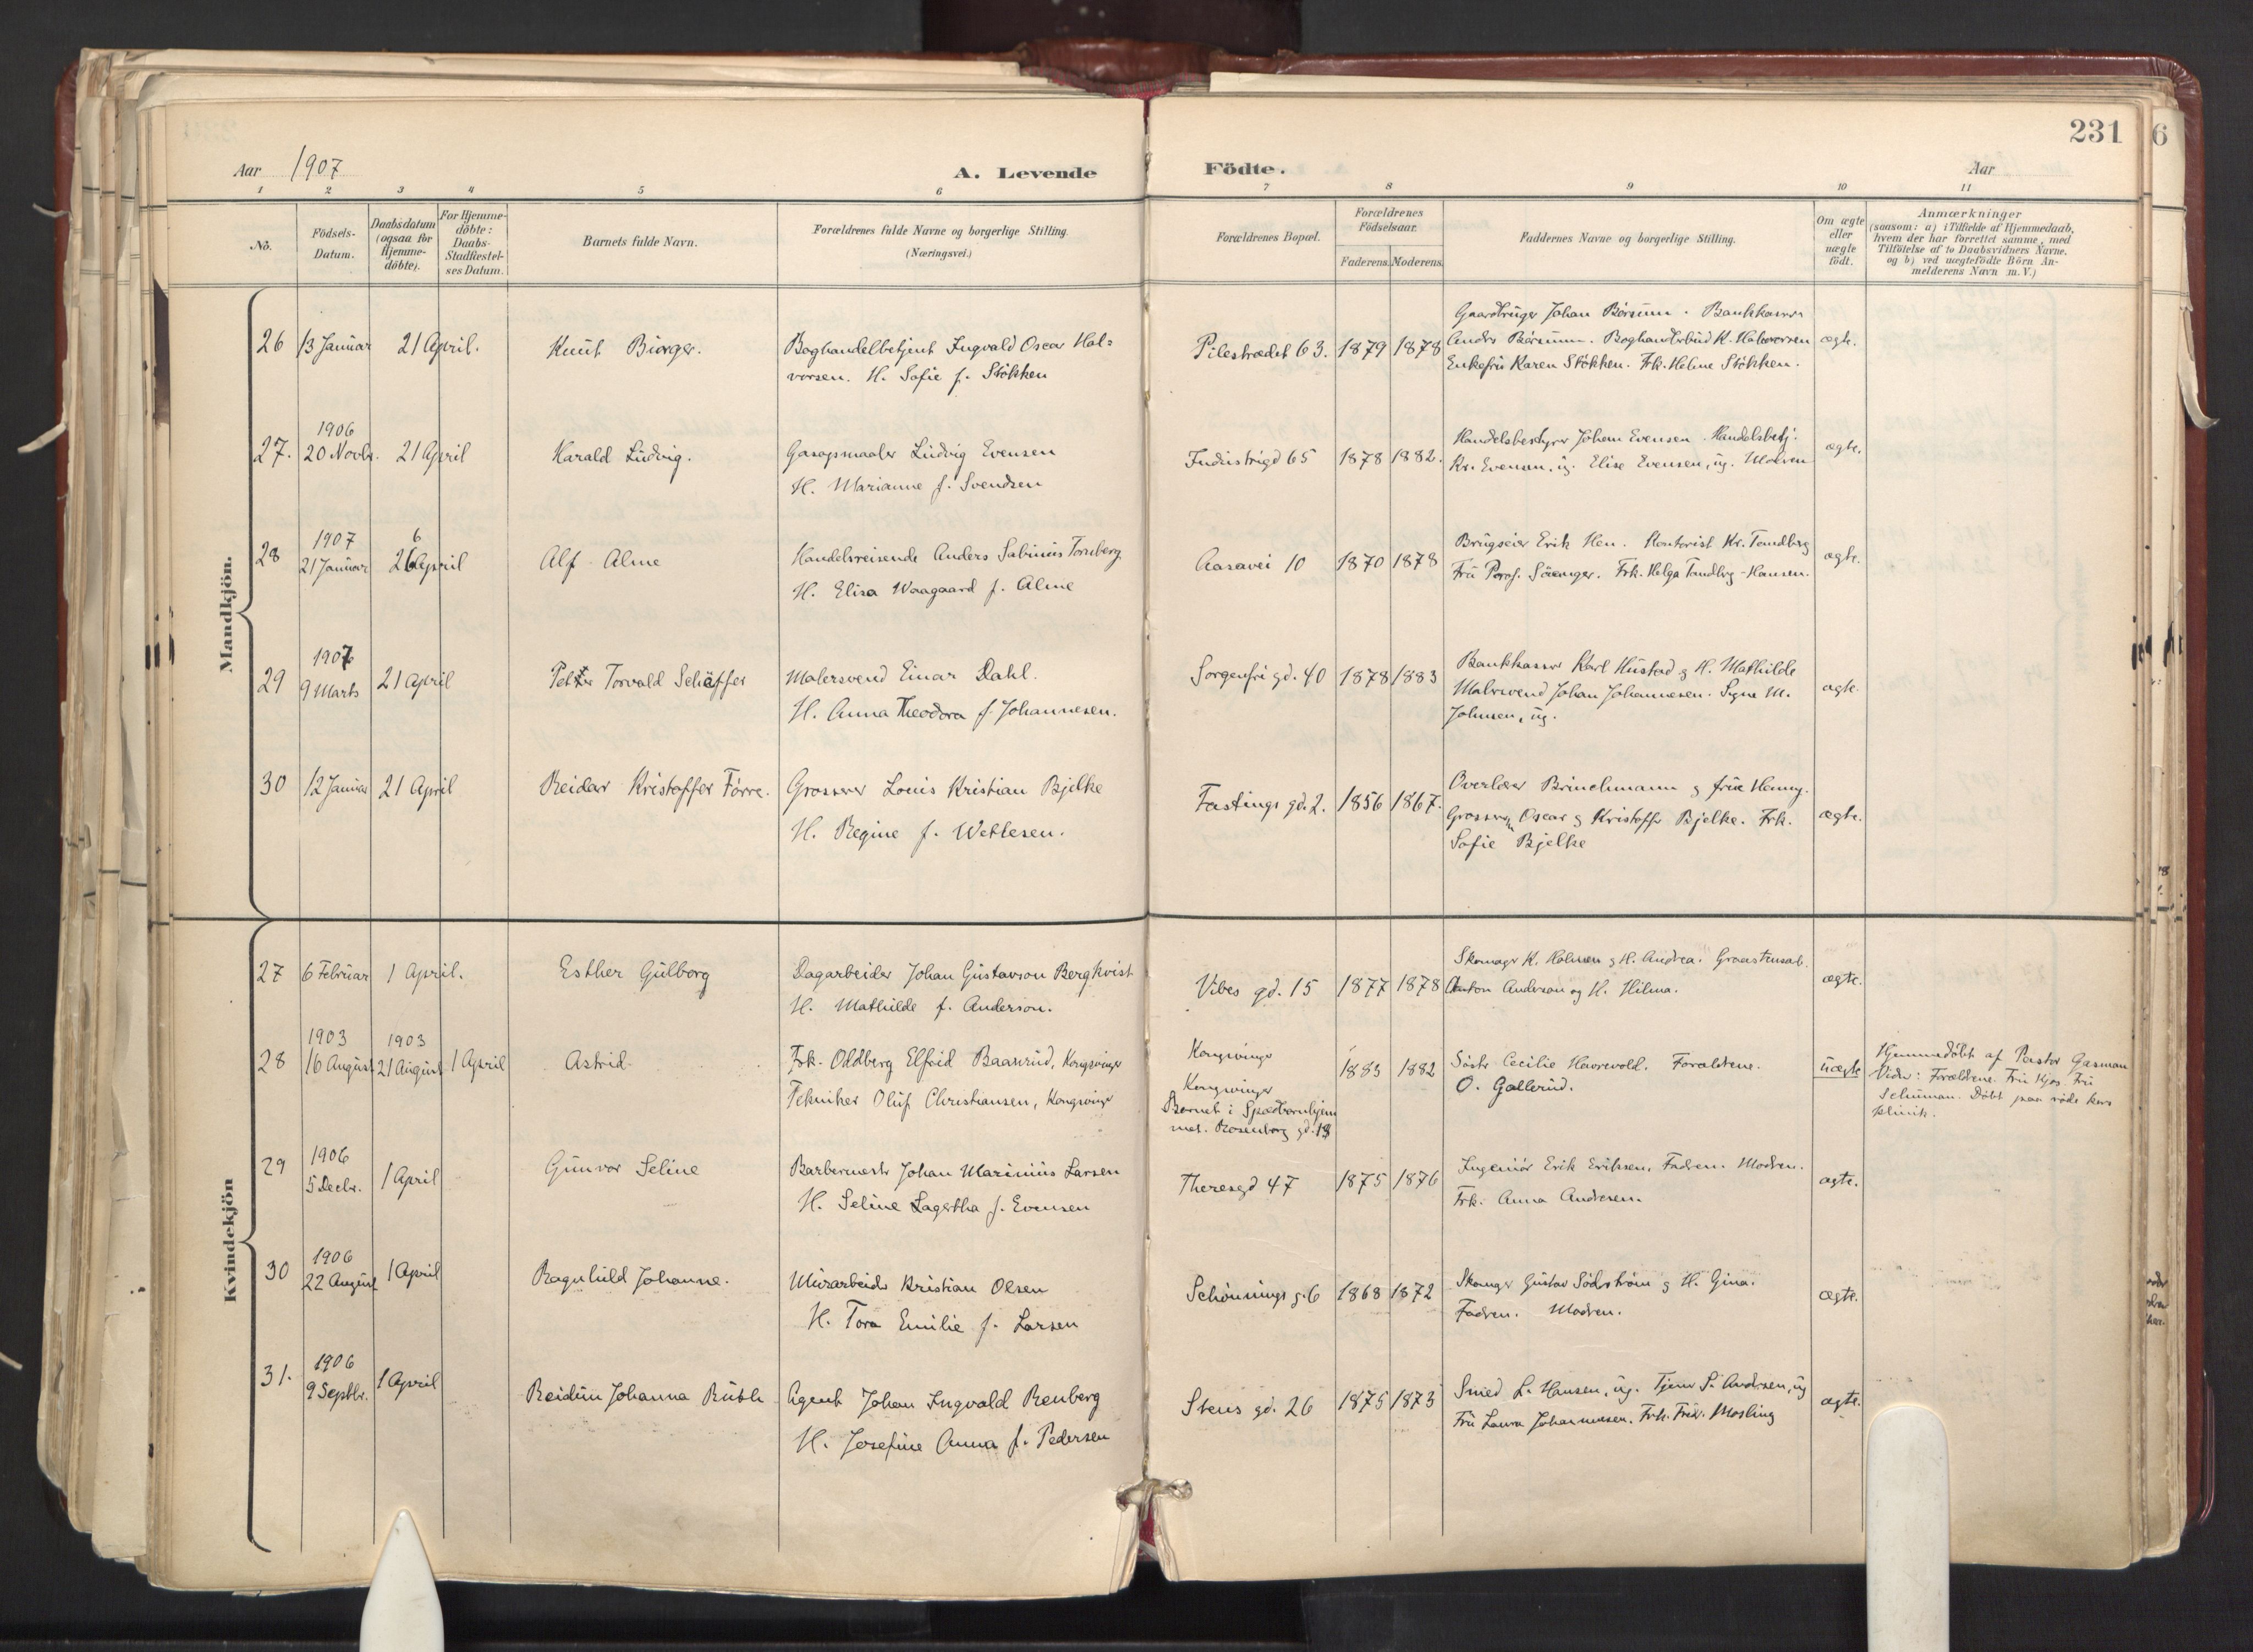 231
6
Aar 1907
A. Levende
Födte.
Aar
1 2 3 4 5 6 7 8 9 10 11
No.
Födsels-
Datum.
Daabsdatum
(ogsaa for
Hjemme-
döbte).
For Hjemme-
döbte:
Daabs-
Stadfæstel-
ses Datum.
Barnets fulde Navn.
Forældrenes fulde Navne og borgerlige Stilling.
(Næringsvei.)
Forældrenes Bopæl.
Forældrenes
Födselsaar.
Faderens. Moderens.
Faddernes Navne og borgerlige Stilling.
Om ægte
eller
uægte
födt.
Anmærkninger
(saasom: a) i Tilfælde af Hjemmedaab,
hvem der har forrettet samme, med
Tilföielse af to Daabsvidners Navne,
og b) ved uægtefödte Börn An-
melderens Navn m. V.)
Mandkjön.
26 13 Januar 21 April. Knut Birger.
Boghandelbetjent Ingvald Oscar Hal-
vorsen. H. Sofie f. Stökken
Pilestrædet 63. 1879 1878
Gaardbruger Johan Börsum. Bankkasserer
Anders Börsum. Boghandlerbud K. Halvorsen
Enkefru Karen Stökken. Frk. Helene Stökken.
ægte.
27. 1906
20 Novbr. 21 April Harald Ludvig.
Gasopmaaler Ludvig Evensen
H. Marianne f. Svendsen
Industrigd 65 1878 1882.
Handelsbestyrer Johan Evensen. Handelsbetj.
Kr. Evensen, ug. Elise Evensen, ug. Modren
ægte.
28 1907
21 Januar 26 April Alf Alme
6
Handelsreisende Anders Sabinus Tornberg
H. Elisa Waagaard f. Alme
Aasavei 10 1870 1878
Brugseier Erik Hen. Kontorist Kr. Tandberg
Fru Sörenger. Frk. Helga Tandbrg-Hansen.
ægte.
29 1907
9 Marts 21 April Petter Torvald Schäffer
Malersvend Einar Dahl.
H. Anna Theodora f. Johannesen.
Sorgenfri gd. 40 1878 1883
Bankkasserer Karl Hustad g H. Mathilde
Malersvend Johan Johannesen. Signe M.
Johnsen, ug.
ægte.
30 12 Januar 21 April Reidar Kristoffer Förre.
Grosserer Louis Kristian Bjelke
H. Regine f. Wettesen.
Fastings gd. 2. 1856 1867.
Overlærer Brinchmann g frue Henny.
Grosserer Oscar g Kristoffer Bjelke. Frk.
Sofie Bjelke
ægte.
Kvindekjön
27 6 Februar 1 April. Esther Gulborg
Dagarbeider Johan Gustavson Bergkvist
H. Mathilde f. Anderson.
Vibes gd. 15 1877 1878
Skomager K. Holmsen g H. Andrea.
Anton Anderson og H. Hilma.
ægte.
28 1903 1903
16 August 21 August 1 April Astrid.
Frk. Oldberg Elfrid Baasrud, Kongsvinger
Tekniker Oluf Christiansen, Kongsvinger
Kongsvinger
Kongsvinger
Barnet i Spædbarnhjem
met. Rosenborg gd. 18
1883 1882
Söster Cecilie Haarevold. Forældrene.
O. Gallerud.
uægte
Hjemmedöbt af Pastor Gasman
Vidner: Forældrene. Fru Kjos. Fru
Schuman. Döbt paa röde kors
klinik.
29 1906
5 Decbr. 1 April Gunvor Seline
Barbermester Johan Marinius Larsen
H. Seline Lagertha f. Evensen
Theresgd 47 1875 1876
Ingeniör Erik Eriksen, Fadren. Modren.
Frk. Anna Andresen.
ægte.
30 1906
22 August 1 April Ragnhild Johanne.
Murarbeider Kristian Olsen
H. Tora Emilie f. Larsen
Schönnings g. 6 1868 1872
Skomager Gustav Söderström g H. Gina.
Fadren. Modren.
ægte.
31. 1906
9 Septbr. 1 April Reidun Johanna Ruth
Agent Johan Ingvald Renberg
H. Josefine Anna f. Pedersen
Stens gd. 26 1875 1873
Smed L. Hansen, ug. Tjener S. Andersen, ug
Fru Laura Johannesen. Frk. Fred. Mosling
ægte.